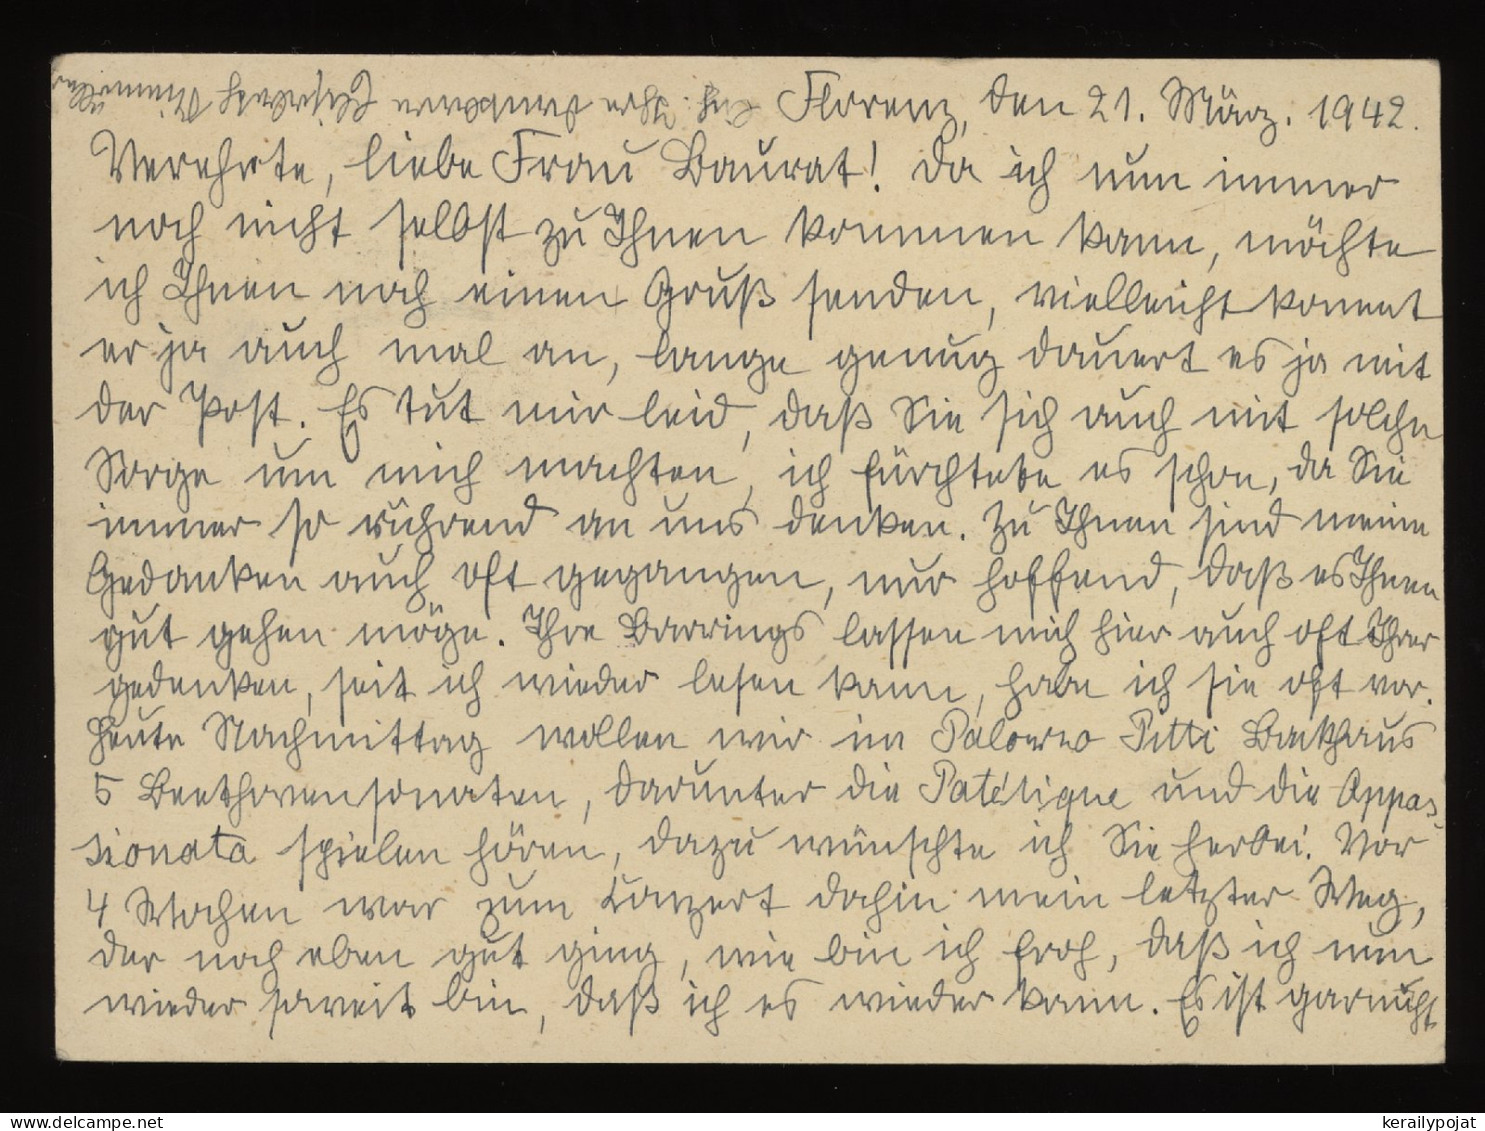 Florenz, den 21. März. 1942.
Verehrte, liebe Frau Baurat! Da ich nun immer
noch nicht selbst zu Ihnen kommen kann, möchte
ich Ihnen noch einen Gruß senden, vielleicht kommt
er ja auch mal an, lange genug dauert es ja mit
der Post. Es tut mir leid, daß Sie sich auch mit solche
Sorge um mich machten, ich fürchtete es schon, da Sie
immer so rührend an uns denken. Zu Ihnen sind meine
Gedanken auch oft gegangen, nur hoffend, daß es Ihnen
gut gehen möge. Ihre Barrings lassen mich hier auch oft Ihrer
gedenken, seit ich wieder lesen kann, habe ich sie oft vor.
Heute Nachmittag wollen wir im Palazzo Pitti Backhaus
5 Beethovensonaten, darunter die Patétique und die Appas-
sionata spielen hören, dazu wünschte ich Sie herbei. Vor
4 Wochen war zum Konzert dahin mein letzter Weg,
der noch eben gut ging, wie bin ich froh, daß ich nun
wieder soweit bin, daß ich es wieder kann. Es ist garnicht
Ihre dankbare
delcampe.net
kerailypojat